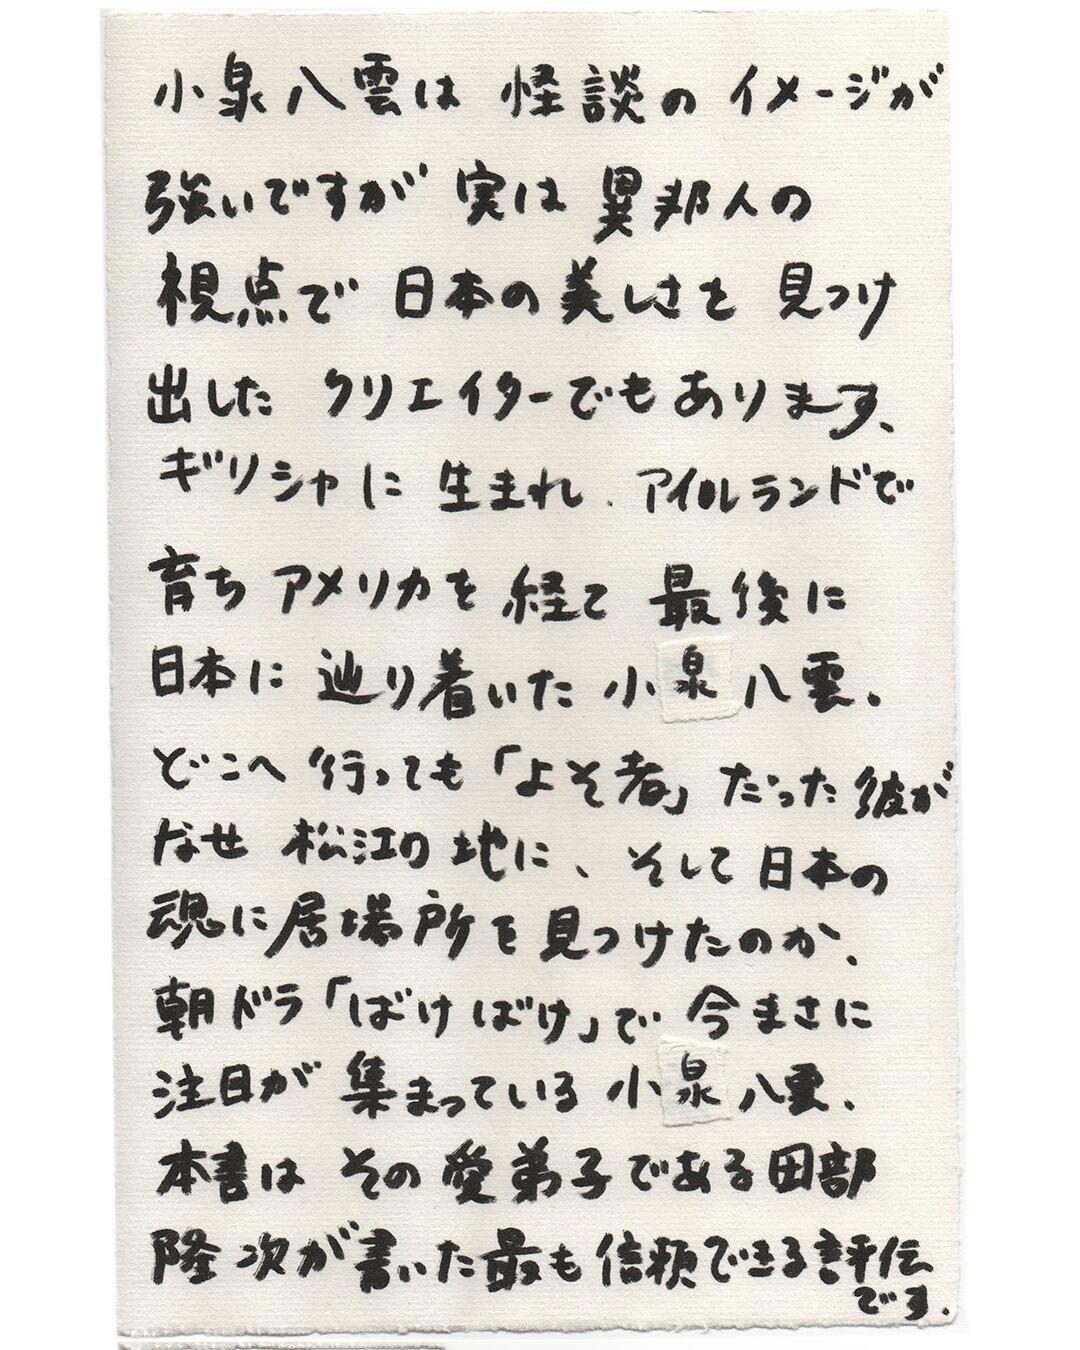 小泉八雲は 怪談の イメージが
強いですが 実は 異邦人の
視点で 日本の 美しさを 見つけ
出した クリエイターでもあります、
ギリシャに 生まれ、アイルランドで
育ち アメリカを 経て 最後に
日本に 辿り着いた 小泉八雲。
どこへ 行っても「よそ者」だった 彼が
なぜ 松江の 地に、そして 日本の
魂に 居場所を 見つけたのか、
朝ドラ「ばけばけ」で 今まさに
注目が 集まっている 小泉八雲、
本書は その 愛弟子である 田部
隆次が 書いた 最も 信頼できる 評伝
です.